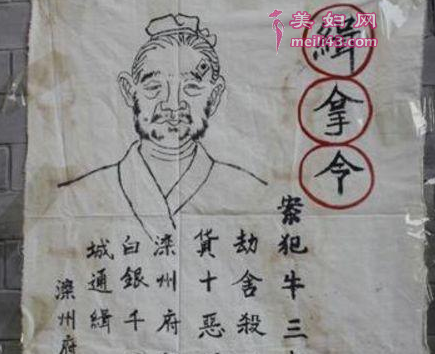 美妇网
meili43.com
緝拿令
案犯牛三
劫舍殺
貨十惡
滦州府
白銀千
城通緝
滦州府